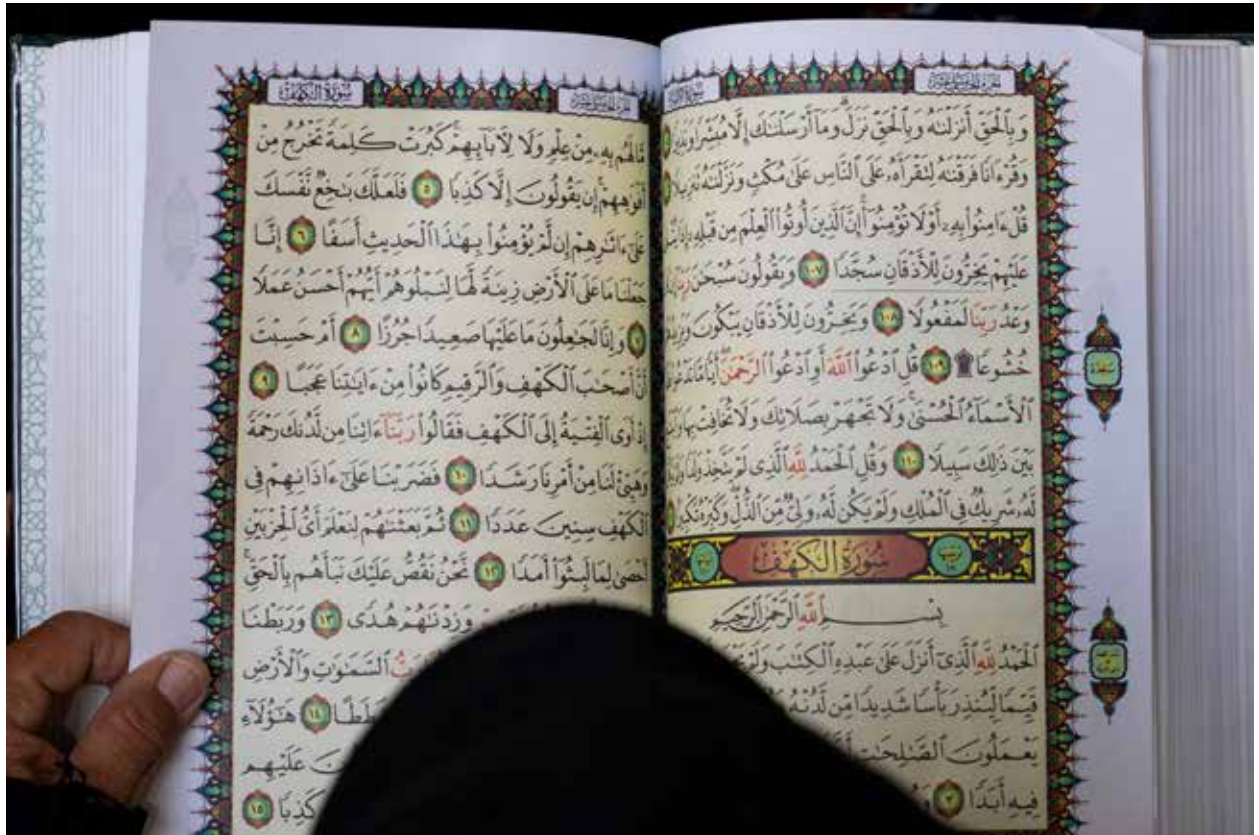 سُورَةُ
وَبِٱلْحَقِّ أَنزَلْنَٰهُ وَبِٱلْحَقِّ نَزَلَ وَمَآ أَرْسَلْنَٰكَ إِلَّا مُبَشِّرًا وَنَذِيرًا
وَقُرْءَانًا فَرَقْنَٰهُ لِتَقْرَأَهُۥ عَلَى ٱلنَّاسِ عَلَىٰ مُكْثٍ وَنَزَّلْنَٰهُ تَنزِيلًا
قُلْ ءَامِنُوا۟ بِهِۦٓ أَوْ لَا تُؤْمِنُوٓا۟ إِنَّ ٱلَّذِينَ أُوتُوا۟ ٱلْعِلْمَ مِن قَبْلِهِۦٓ إِذَا
عَلَيْهِمْ يَخِرُّونَ لِلْأَذْقَانِ سُجَّدًا ١٠٧ وَيَقُولُونَ سُبْحَٰنَ رَبِّنَآ
وَعْدُ رَبِّنَا لَمَفْعُولًا ١٠٨ وَيَخِرُّونَ لِلْأَذْقَانِ يَبْكُونَ
خُشُوعًا ۩ ١٠٩ قُلِ ٱدْعُوا۟ ٱللَّهَ أَوِ ٱدْعُوا۟ ٱلرَّحْمَٰنَ أَيًّا مَّا
ٱلْأَسْمَآءُ ٱلْحُسْنَىٰ وَلَا تَجْهَرْ بِصَلَاتِكَ وَلَا تُخَافِتْ بِهَا
بَيْنَ ذَٰلِكَ سَبِيلًا ١١٠ وَقُلِ ٱلْحَمْدُ لِلَّهِ ٱلَّذِى لَمْ يَتَّخِذْ وَلَدًا
لَّهُۥ شَرِيكٌ فِى ٱلْمُلْكِ وَلَمْ يَكُن لَّهُۥ وَلِىٌّ مِّنَ ٱلذُّلِّ وَكَبِّرْهُ تَكْبِيرًا
سُورَةُ الكَهْفِ
بِسْمِ ٱللَّهِ ٱلرَّحْمَٰنِ ٱلرَّحِيمِ
ٱلْحَمْدُ لِلَّهِ ٱلَّذِىٓ أَنزَلَ عَلَىٰ عَبْدِهِ ٱلْكِتَٰبَ وَلَمْ
قَيِّمًا لِّيُنذِرَ بَأْسًا شَدِيدًا مِّن لَّدُنْهُ
يَعْمَلُونَ ٱلصَّٰلِحَٰتِ
فِيهِ أَبَدًا ٣
سَجْدَة
سُورَةُ الكَهْفِ
مَّا لَهُم بِهِۦ مِنْ عِلْمٍ وَلَا لِءَابَآئِهِمْ كَبُرَتْ كَلِمَةً تَخْرُجُ مِنْ
أَفْوَٰهِهِمْ إِن يَقُولُونَ إِلَّا كَذِبًا ٥ فَلَعَلَّكَ بَٰخِعٌ نَّفْسَكَ
عَلَىٰٓ ءَاثَٰرِهِمْ إِن لَّمْ يُؤْمِنُوا۟ بِهَٰذَا ٱلْحَدِيثِ أَسَفًا ٦ إِنَّا
جَعَلْنَا مَا عَلَى ٱلْأَرْضِ زِينَةً لَّهَا لِنَبْلُوَهُمْ أَيُّهُمْ أَحْسَنُ عَمَلًا
٧ وَإِنَّا لَجَٰعِلُونَ مَا عَلَيْهَا صَعِيدًا جُرُزًا ٨ أَمْ حَسِبْتَ
أَنَّ أَصْحَٰبَ ٱلْكَهْفِ وَٱلرَّقِيمِ كَانُوا۟ مِنْ ءَايَٰتِنَا عَجَبًا ٩
إِذْ أَوَى ٱلْفِتْيَةُ إِلَى ٱلْكَهْفِ فَقَالُوا۟ رَبَّنَآ ءَاتِنَا مِن لَّدُنكَ رَحْمَةً
وَهَيِّئْ لَنَا مِنْ أَمْرِنَا رَشَدًا ١٠ فَضَرَبْنَا عَلَىٰٓ ءَاذَانِهِمْ فِى
ٱلْكَهْفِ سِنِينَ عَدَدًا ١١ ثُمَّ بَعَثْنَٰهُمْ لِنَعْلَمَ أَىُّ ٱلْحِزْبَيْنِ
أَحْصَىٰ لِمَا لَبِثُوٓا۟ أَمَدًا ١٢ نَّحْنُ نَقُصُّ عَلَيْكَ نَبَأَهُم بِٱلْحَقِّ
وَزِدْنَٰهُمْ هُدًى ١٣ وَرَبَطْنَا
رَبُّ ٱلسَّمَٰوَٰتِ وَٱلْأَرْضِ
شَطَطًا ١٤ هَٰٓؤُلَآءِ
عَلَيْهِم
كَذِبًا ١٥